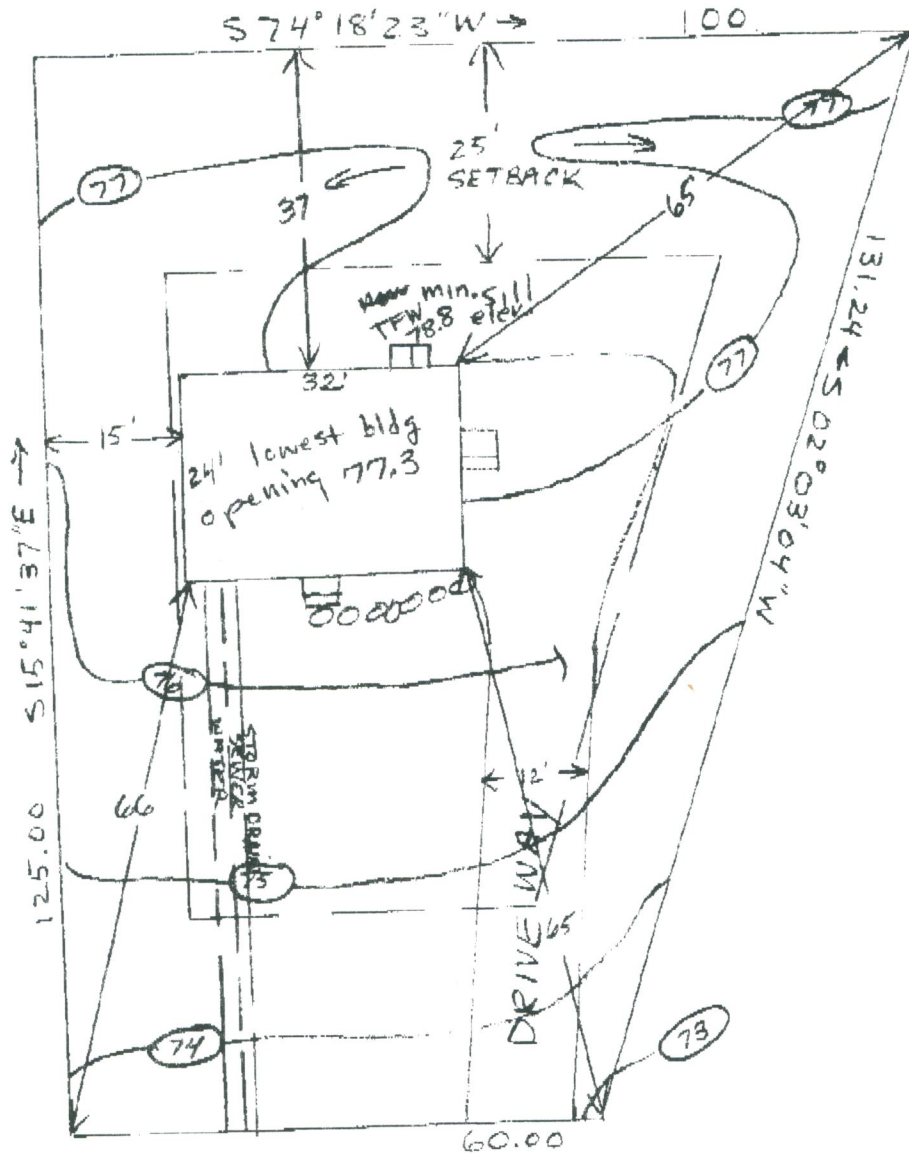 S 74° 18' 23" W →
100
77
77
25'
SETBACK
37
65
min. sill
TFW 78.8 elev.
131.24 ← S 02° 03' 04" W
77
32'
15'
24' lowest bldg
opening 77.3
S 15° 41' 37" E →
125.00
76
66
WATER
SEWER
STORM DRAIN
12'
75
DRIVEWAY
65
74
73
60.00